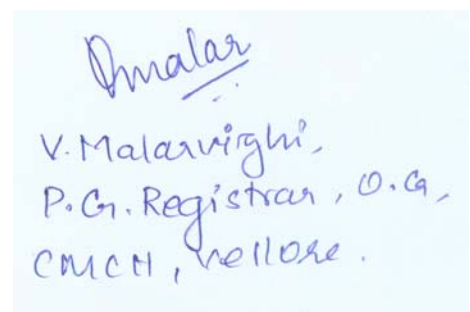 V. Malarvighi,
P.G. Registrar, O.G,
CMCH, Vellore.